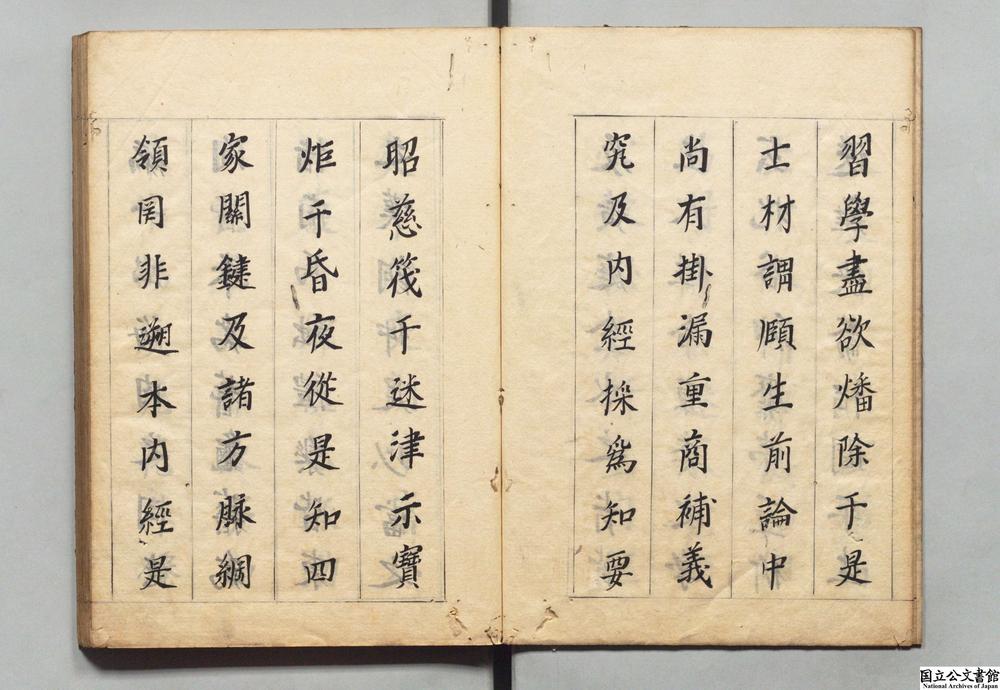 習學盡欲燔除于是
士材謂頋生前論中
尚有掛漏重啇補義
究及内經採為知要
昭慈筏于迷津示寶
炬于昏夜從是知四
家關鍵及諸方脉綱
領罔非遡本内經是
国立公文書館
National Archives of Japan